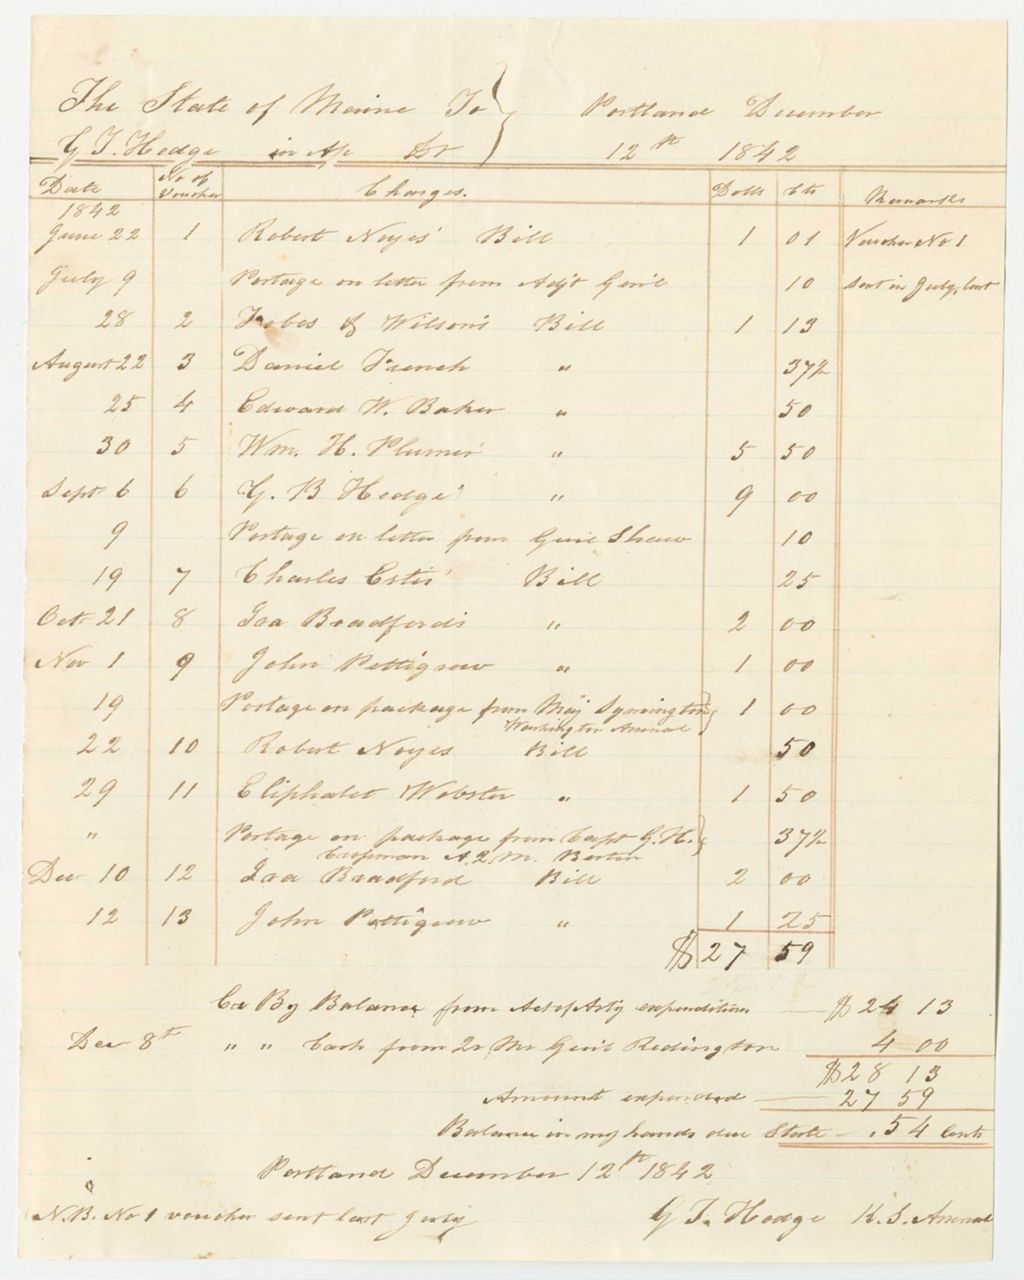 The State of Maine To Portland December
G T. Hodge in Ap Dr 12th 1842
Date No of Voucher Charges. Dolls Cts Remarks
1842
June 22 1 Robert Noyes' Bill 1 01 Voucher No 1
July 9 Postage on letter from Adj't Gen'l 10 sent in July, last
28 2 Fobes & Wilson's Bill 1 13
August 22 3 Daniel French " 37½
25 4 Edward W. Baker " 50
30 5 Wm. H. Plumer' " 5 50
Sept 6 6 G. B Hodge' " 9 00
9 Postage on letter from Gen'l Shaw 10
19 7 Charles Estis' Bill 25
Oct 21 8 Isa Bradford's " 2 00
Nov 1 9 John Pettigrew " 1 00
19 Postage on package from Maj Symington 1 00
Washington Arsenal
22 10 Robert Noyes Bill 50
29 11 Eliphalet Webster " 1 50
" Postage on package from Capt G. H. 37½
A. 2. M. Boston
Dec 10 12 Isa Bradford Bill 2 00
12 13 John Pettigrew " 1 25
$ 27 59
Cr By Balance from Act of Art'y expenditures $ 24 13
Dec 8th " " Cash from Qr Mr Gen'l Redington 4 00
$28 13
Amount expended 27 59
Balance in my hands due State .54 Cents
Portland December 12th 1842
N.B. No 1 voucher sent last July G T. Hodge K. S. Arsenal